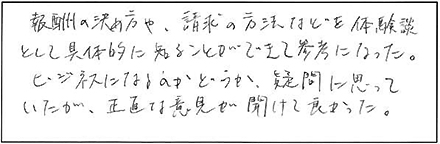 報酬の決め方や、請求の方法などを体験談
として具体的に知ることができて参考になった。
ビジネスになるのかどうか、疑問に思って
いたが、正直な意見が聞けて良かった。